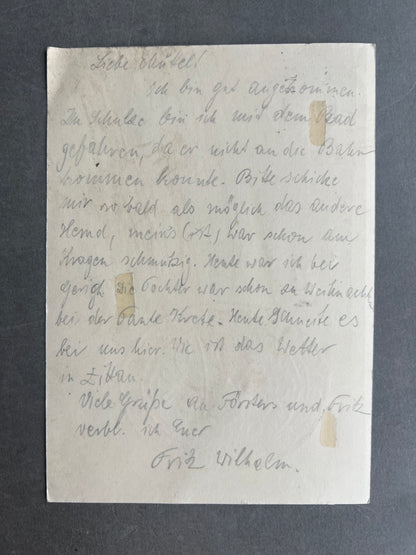 Liebe Mutel!
Ich bin gut angekommen.
Zu Schulze bin ich mit dem Rad
gefahren, da er nicht an die Bahn
kommen konnte. Bitte schicke
mir so bald als möglich das andere
Hemd, meins war schon am
Kragen schmutzig. Heute war ich bei
Die Tochter war schon zu Weihnacht
bei der Tante Krete. Heute Schneite es
bei uns hier. Wie ist das Wetter
in Zittau.
Viele Grüße an Försters und Fritz
verbl. ich Euer
Fritz Wilhelm.